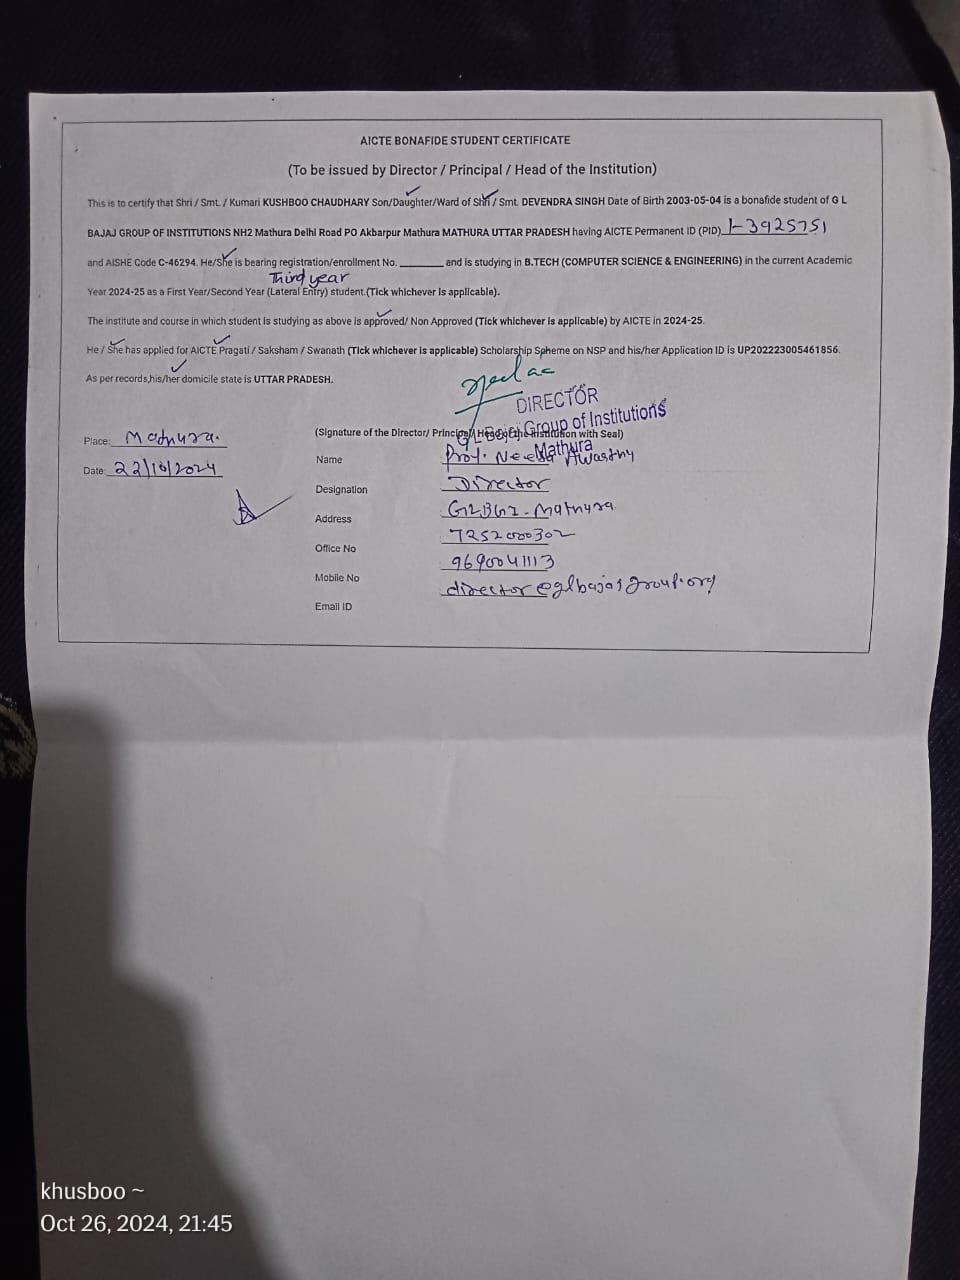 AICTE BONAFIDE STUDENT CERTIFICATE
(To be issued by Director / Principal / Head of the Institution)
This is to certify that Shri / Smt. / Kumari KUSHBOO CHAUDHARY Son/Daughter/Ward of Shri / Smt. DEVENDRA SINGH Date of Birth 2003-05-04 is a bonafide student of G L
BAJAJ GROUP OF INSTITUTIONS NH2 Mathura Delhi Road PO Akbarpur Mathura MATHURA UTTAR PRADESH having AICTE Permanent ID (PID) 1-3925751
and AISHE Code C-46294. He/She is bearing registration/enrollment No. ________ and is studying in B.TECH (COMPUTER SCIENCE & ENGINEERING) in the current Academic
Third year
Year 2024-25 as a First Year/Second Year (Lateral Entry) student.(Tick whichever is applicable).
The institute and course in which student is studying as above is approved/ Non Approved (Tick whichever is applicable) by AICTE in 2024-25.
He / She has applied for AICTE Pragati / Saksham / Swanath (Tick whichever is applicable) Scholarship Spheme on NSP and his/her Application ID is UP202223005461856.
As per records,his/her domicile state is UTTAR PRADESH.
DIRECTOR
GL Bajaj Group of Institutions
Mathura
Place: Mathura.
(Signature of the Director/ Principal/ Head of the Institution with Seal)
Date: 22/10/2024
Name Prof. Neeta Awasthy
Designation Director
Address GLBGI - Mathura
Office No 7252000302
Mobile No 9690041113
Email ID director@glbajajgroup.org
khusboo ~
Oct 26, 2024, 21:45